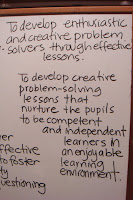 To develop enthusiastic
and creative problem
-solvers through effective
lessons.
To develop creative
problem-solving
lessons that
nurture the pupils
to be competent
and independent
learners in
an enjoyable
learning
environment.
effective
to foster